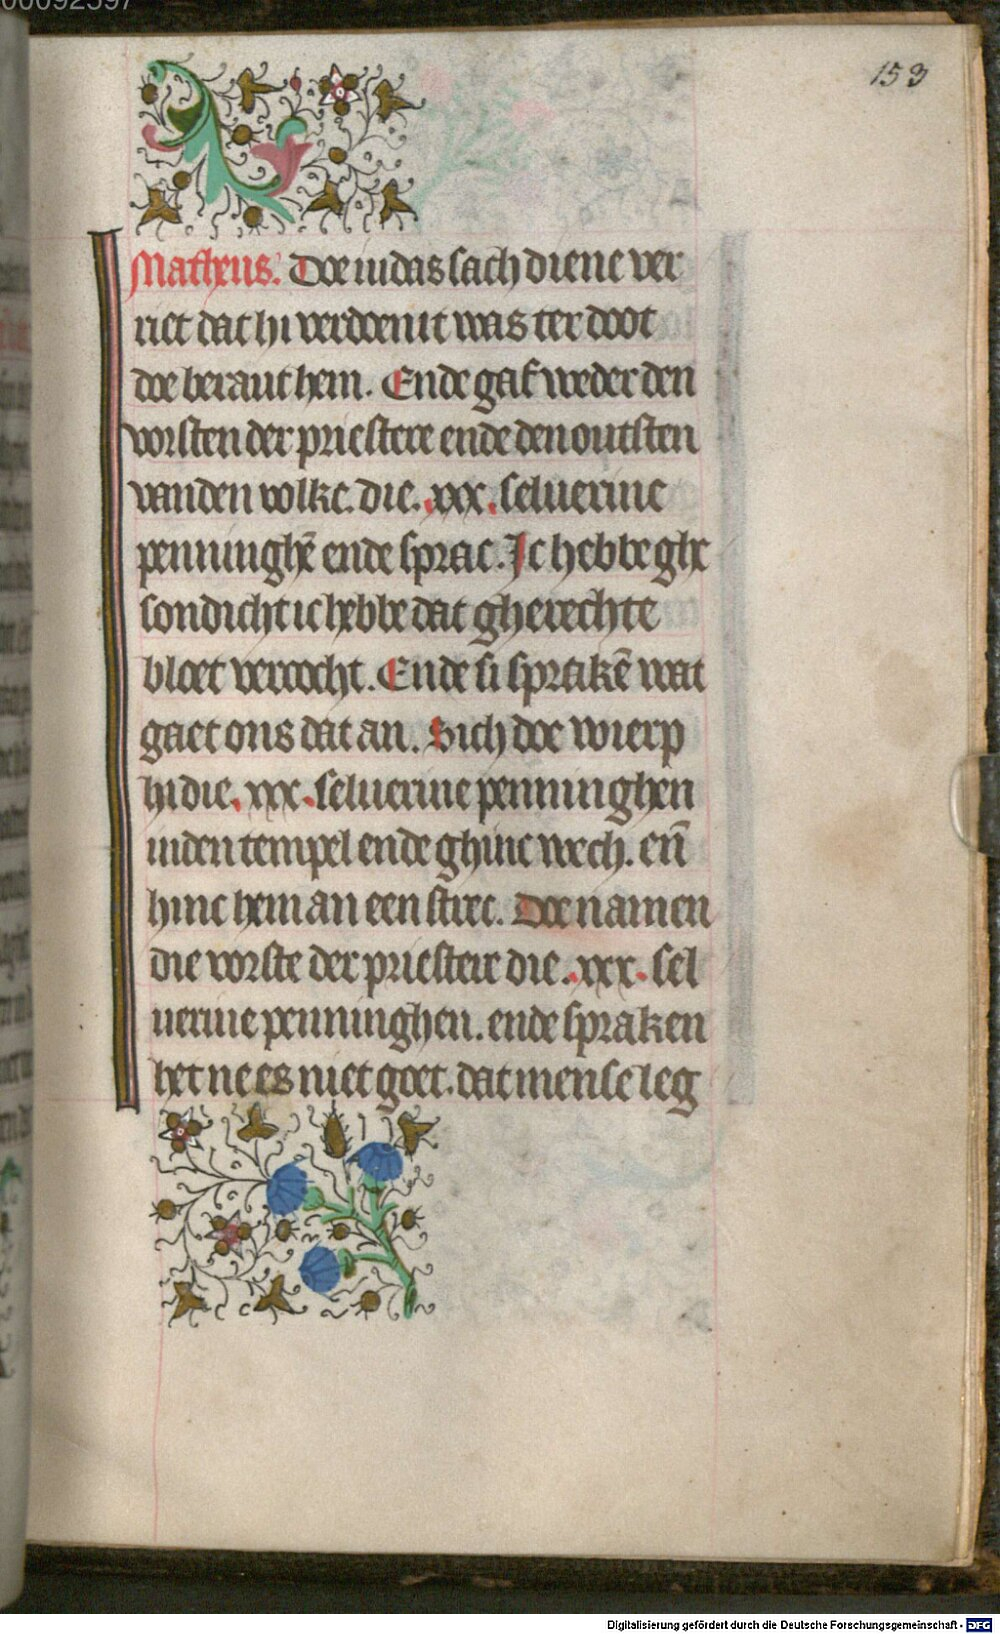 00092597
153
Matheus. Doe iudas sach diene ver
riet dat hi verdoemt was ter doot
doe beraut hem. Ende gaf weder den
vorsten der priestere ende den outsten
vanden volke. die .xxx. seluerine
penninghē ende sprac. Ic hebbe ghe
sondicht ic hebbe dat gherechte
bloet vercocht. Ende si sprakē wat
gaet ons dat an. Sich doe wierp
hi die .xxx. seluerine penninghen
inden tempel ende ghinc wech. eñ
hinc hem an een strec. Doe namen
die vorste der priestere die .xxx. sel
uerine penninghen. ende spraken
het ne es niet goet. dat mense leg
Digitalisierung gefördert durch die Deutsche Forschungsgemeinschaft - DFG